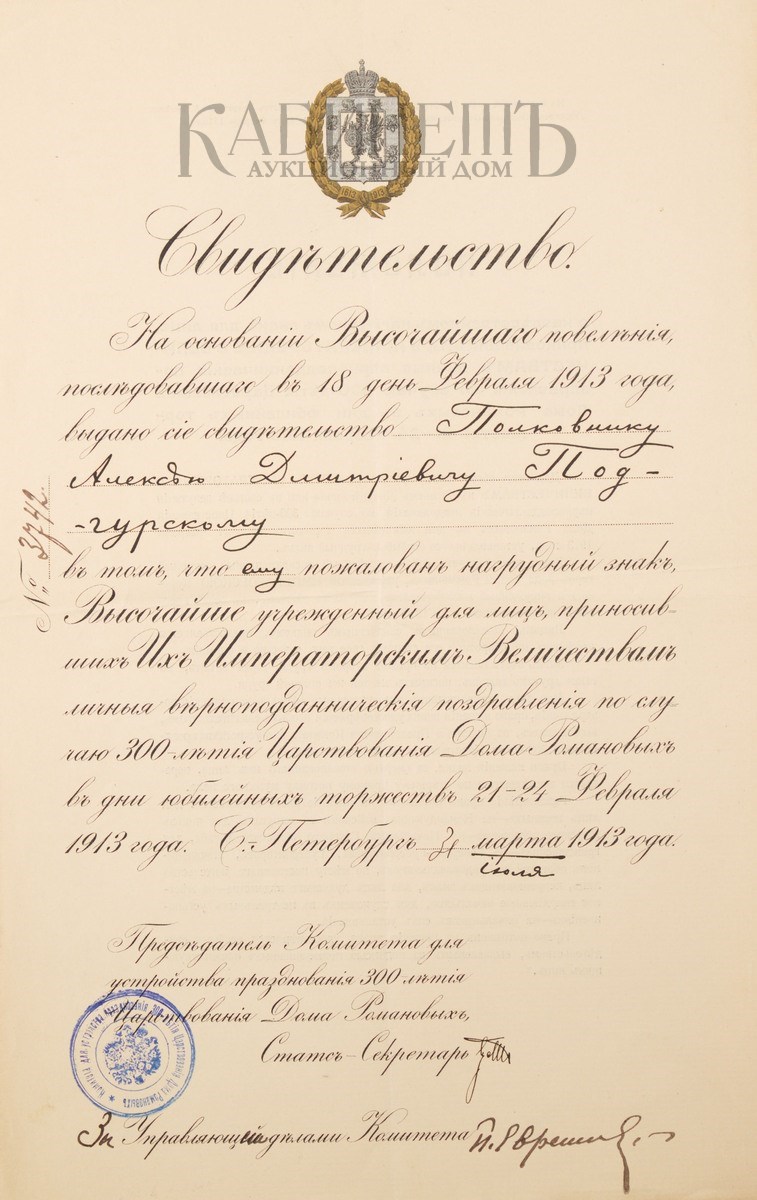 КАБИНЕТЪ
АУКЦИОННЫЙ ДОМ
1613 1913
Свидѣтельство.
На основаніи Высочайшаго повелѣнія,
послѣдовавшаго въ 18 день Февраля 1913 года,
выдано сіе свидѣтельство Полковнику
Алексѣю Дмитріевичу Под-
-гурскому
въ томъ, что ему пожалованъ нагрудный знакъ,
Высочайше учрежденный для лицъ, приносив-
шихъ Ихъ Императорскимъ Величествамъ
личныя вѣрноподданническія поздравленія по слу-
чаю 300-лѣтія Царствованія Дома Романовыхъ
въ дни юбилейныхъ торжествъ 21-24 Февраля
1913 года. С.-Петербургъ марта 1913 года.
іюля
№ 3742.
Предсѣдатель Комитета для
устройства празднованія 300 лѣтія
Царствованія Дома Романовыхъ,
Статсъ-Секретарь
Комитетъ для устройства празднованія 300-лѣтія Царствованія Дома Романовыхъ
За Управляющаго дѣлами Комитета